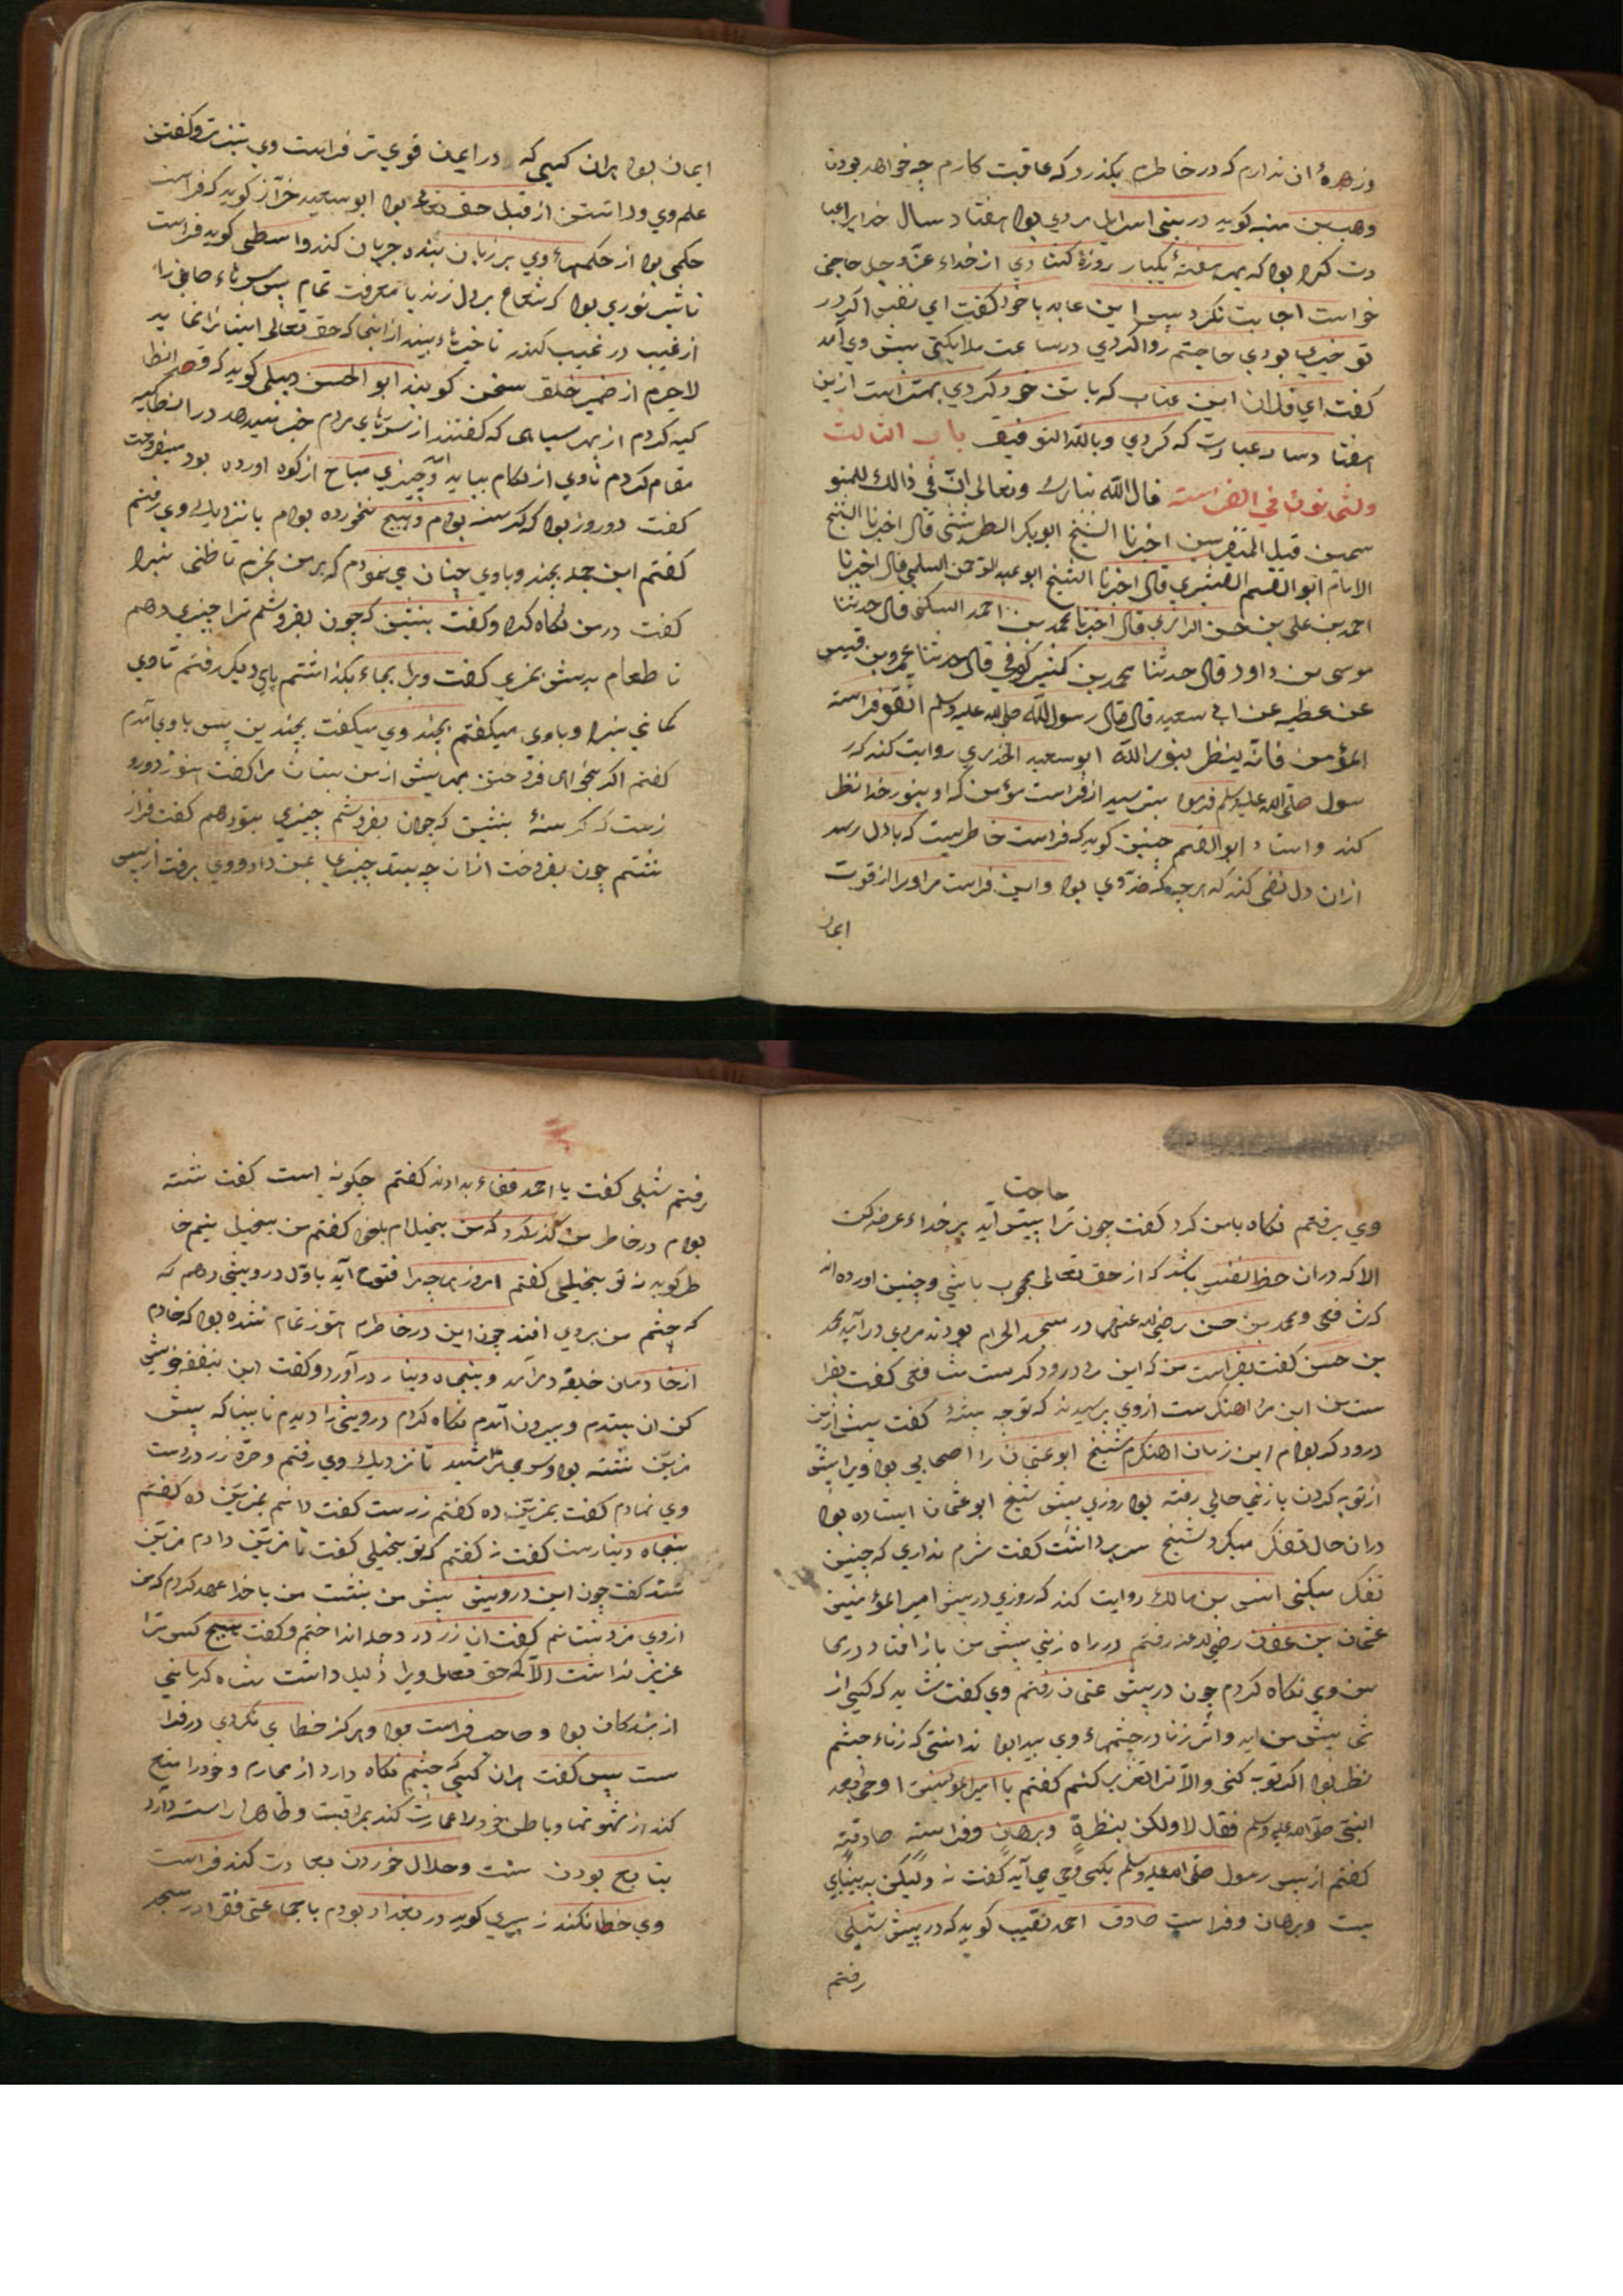 وزهرهٔ آن ندارم که در خاطرم بکذرد که عاقبت کارم چه خواهد بودن
وهب بن منبه کوید در بنی اسرایل مردی بود هفتاد سال خدایرا عبا
دت کرده بود که بهر هفتهٔ یکبار روزهٔ کشادی از خداء عزّ وجل حاجتی
خواست اجابت نکرد پس این عابد با خود کفت ای نفس اکر در
تو خیری بودی حاجتم روا کردی در ساعت ملایکتی پیش وی آمد
کفت ای فلان این عتاب که با تن خود کردی بهتر است ازین
هفتاد سال عبادت که کردی وبالله التوفیق باب الثالث
والثمانون فی الفراسته قال الله تبارک وتعالی انّ فی ذالک للمتو
سمین قیل المتفرسین اخبرنا الشیخ ابوبکر الطریثیثی قال اخبرنا الشیخ
الامام ابو القسم القشیری قال اخبرنا الشیخ ابو عبد الرحمن السلمی قال اخبرنا
احمد بن علی بن حسن الرازی قال اخبرنا محمد بن احمد السکنی قال حدثنا
موسی بن داود قال حدثنا محمد بن کثیر کوفی قال حدثنا عمرو بن قیس
عن عطیه عن ابی سعید قال قال رسول الله صلی الله علیه وسلم اتّقو فراسته
المؤمن فانّه ینظر بنور الله ابو سعید الخدری روایت کند که ر
سول صلّی الله علیه وسلم فرمود بترسید از فراست مؤمن که او بنور خدا نظر
کند واستاد ابو القسم چنین کوید که فراست خاطریست که با دل رسد
از آن دل نفی کند که هرچه که ضدّ وی بود واین فراست مر اورا از قوت
ایمان
ایمان بود هران کسی که در ایمان قوی تر فراست وی تیز تر وکفتن
علم وی وداشتن از قبل حق تعالی بود ابو سعید خرّاز کوید که فراست
حکمی بود از حکمهاء وی بر زبان بنده جریان کند واسطی کوید فراست
تاثیر نوری بود که شعاع بر دل زند با معرفت تمام پس سرّهاء صافی را
از غیب در غیب کذر تا چیزهاء بیند از انجا که حق تعالی ایشانرا نماید
لاجرم از ضمیر خلق سخن کویند ابو الحسن دیلمی کوید که قصد انطا
کیه کردم از بهر سیاهی که کفتند از سرّهای مردم خبر میدهد در انطاکیه
مقام کردم تا وی از لکام بیاید وچیزی مباح از کوه اورده بود میفروخت
کفت دو روز بود که کرسنه بودم وهیچ نخورده بودم با نزدیک وی رفتم
کفتم این جمله بچند وباوی چنان می نمودم که برمن بخرم تا ظنی نبرد
کفت در من نکاه کرد وکفت بنشین که چون بفروشم ترا چیزی دهم
تا طعام پیش بخری کفت ویرا بجاء بکذاشتم پای دیکر رفتم تا وی
کمانی نبرد وباوی میکفتم بچند وی میکفت بچندین پس باوی آمدم
کفتم اکر میخواهی فروختن بهایش از من بستان مرا کفت هنوز دو رو
زست که کرسنهٔ بنشین که چون بفروشم چیزی بتو دهم کفت فراز
نشستم چون بفروخت انان چه بستد چیزی بمن داد ووی برفت از پس
حاجت
وی برفتم نکاه بامن کرد کفت چون ترا پیش آید بر خداء عرضه کن
الا که در ان حظ نفس باشد که از حق تعالی محجوب باشی وچنین اورده اند
که شافعی ومحمد بن حسن رضی الله عنهم در مسجد الحرام بودند مردی در آید محمد
بن حسن کفت بفراست من که این مرد درودکرست شافعی کفت بفرا
ست من این مرد اهنکرست از وی پرسیدند که تو چه پیشهٔ کفت پیش ازین
درودکر بودم این زمان اهنکرم شیخ ابو عثمان را اصحابی بود ویرا پیش
از توبه کردن با زنی حالی رفته بود روزی پیش شیخ ابو عثمان ایستاده بود
در ان حال تفکر میکرد شیخ سر برداشت کفت شرم نداری که چنین
تفکر میکنی انس بن مالک روایت کند که روزی در پیش امیر المؤمنین
عثمان بن عفان رضی الله عنه رفتم در راه زنی پیش من باز افتاد در ی
من وی نکاه کردم چون در پیش عثمان رفتم وی کفت شاید که کسی از
شما پیش من اید واثر زنا در چشمهاء وی پیدا بود ندانستی که زناء چشم
نظر بود اکر توبه کنی والّا ترا تعزیر کنم کفتم یا امیر المؤمنین اوحی بعد
النبی صلّی الله علیه وسلم فقال لا ولکن بنظرةٍ وبرهانٍ وفراسته صادقته
کفتم از پس رسول صلّی الله علیه وسلم بکسی وحی می آید کفت نه ولیکن به بینای
یست وبرهان وفراست صادق احمد نقیب کوید که در پیش شبلی
رفتم
رفتم شبلی کفت یا احمد قفاء بدادند کفتم چکونه است کفت نشسته
بودم در خاطر من کذر کرد که من بخیلم بخود کفتم من بخیل نیم خا
طر کوید نه تو بخیلی کفتم امروز هرچه مرا فتوح آید باوّل درویشی دهم که
که چشم من بروی افتد چون این در خاطرم هنوز تمام نشده بود که خادم
از خادمان خلیفه در آمد وپنجاه دینار در آورد وکفت این بنفقه خویش
کن ان بستدم وبیرون آمدم نکاه کردم درویشی را دیدم نابینا که پیش
مزین نشسته بود وموی می تراشید تا نزدیک وی رفتم وصرّهٔ زر در دست
وی نهادم کفت بمزیّن ده کفتم زرست کفت دانم بمزیّن ده کفتم
پنجاه دینارست کفت نه کفتم که تو بخیلی کفت تا مزیّن دادم مزیّن
نستد کفت چون این درویش پیش من بنشست من با خدا عهد کردم که من
از وی مزد نستانم کفت ان زر در دجله انداختم وکفت هیچ کس ترا
عزیز نداشت الّا که حق تعالی ویرا ذلیل داشت شاه کرمانی
از بزرکان بود وصاحب فراست بود وهرکز خطای نکردی در فرا
ست پس کفت هران کسی که چشم نکاه دارد از محارم وخودرا منع
کند از شهوتها وباطن خودرا عمارت کند بمراقبت وظاهرا راسته دارد
بتابع بودن سنت وحلال خوردن بعادت کند فراست
وی خطا نکند زیری کوید در بغداد بودم با جماعتی فقرا در مسجد